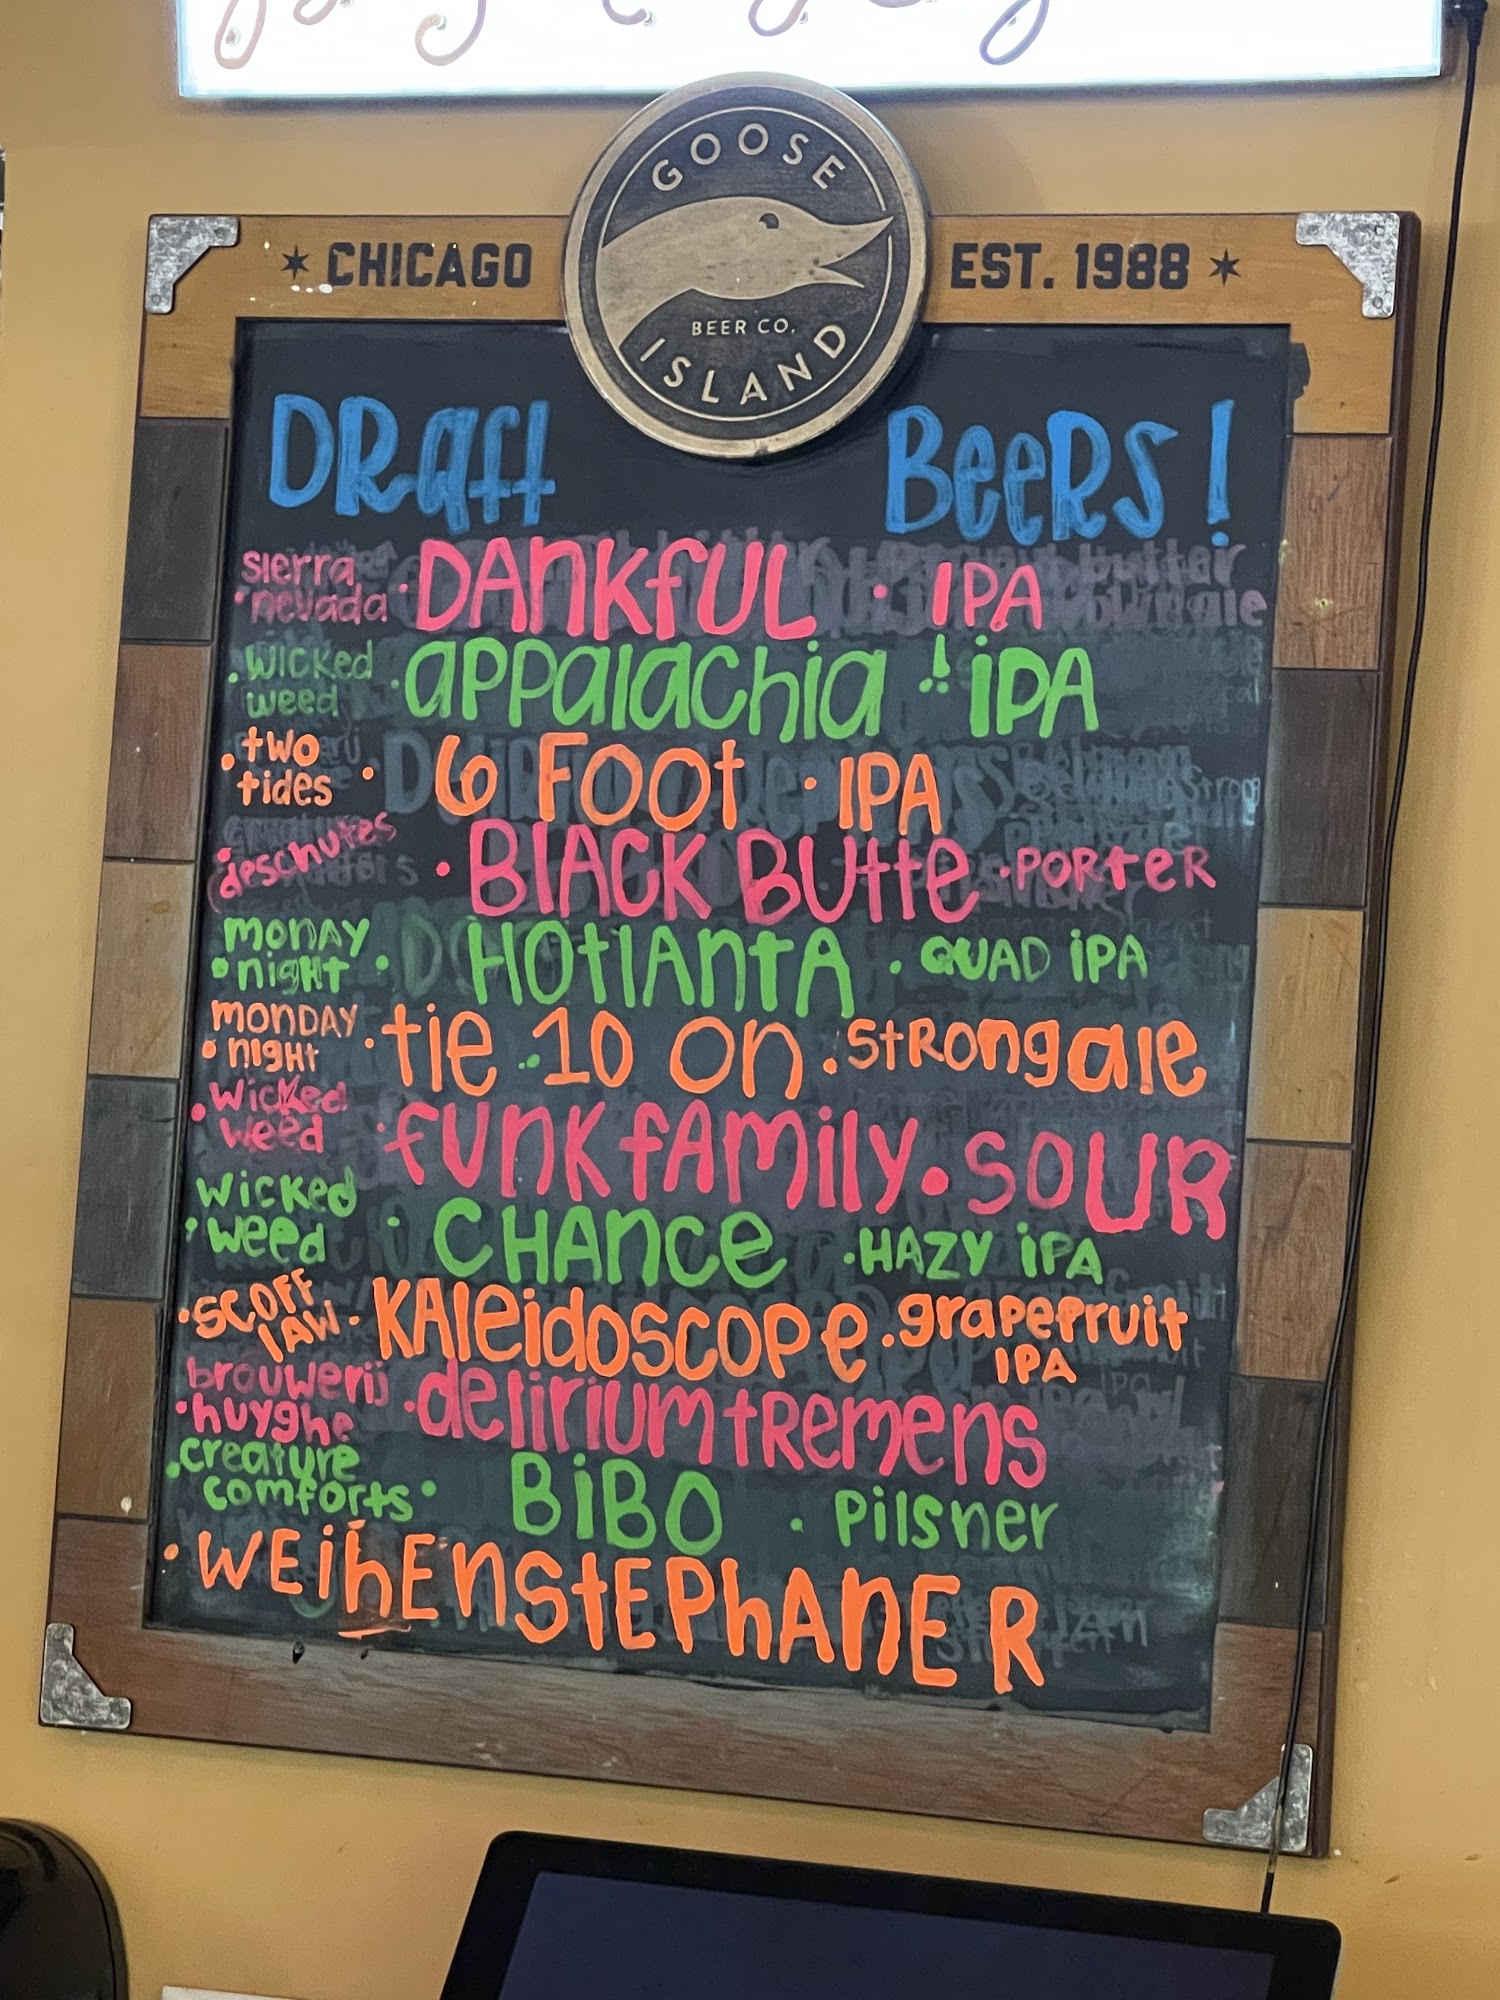 GOOSE
ISLAND
BEER CO.
CHICAGO
EST. 1988
DRaft BeeRs!
sierra nevada · DANKfUL · IPA
· wicked weed · appalachia · iPA
· two tides · 6 FOOt · IPA
· deschutes · BlACK BUtte · PORteR
· monay night · HOtlAntA · QUAD iPA
· monDAY night · tie 10 on · StRong ale
· wicked weed · fUnK fAmily · SOUR
· wicked weed · CHAnce · HAZY iPA
· SCOFF lAW · KAleidoscope · grapefruit IPA
· brouwerij huyghe · delirium tRemens
· creature comforts · BiBO · Pilsner
· WEihEnStEPhAnER